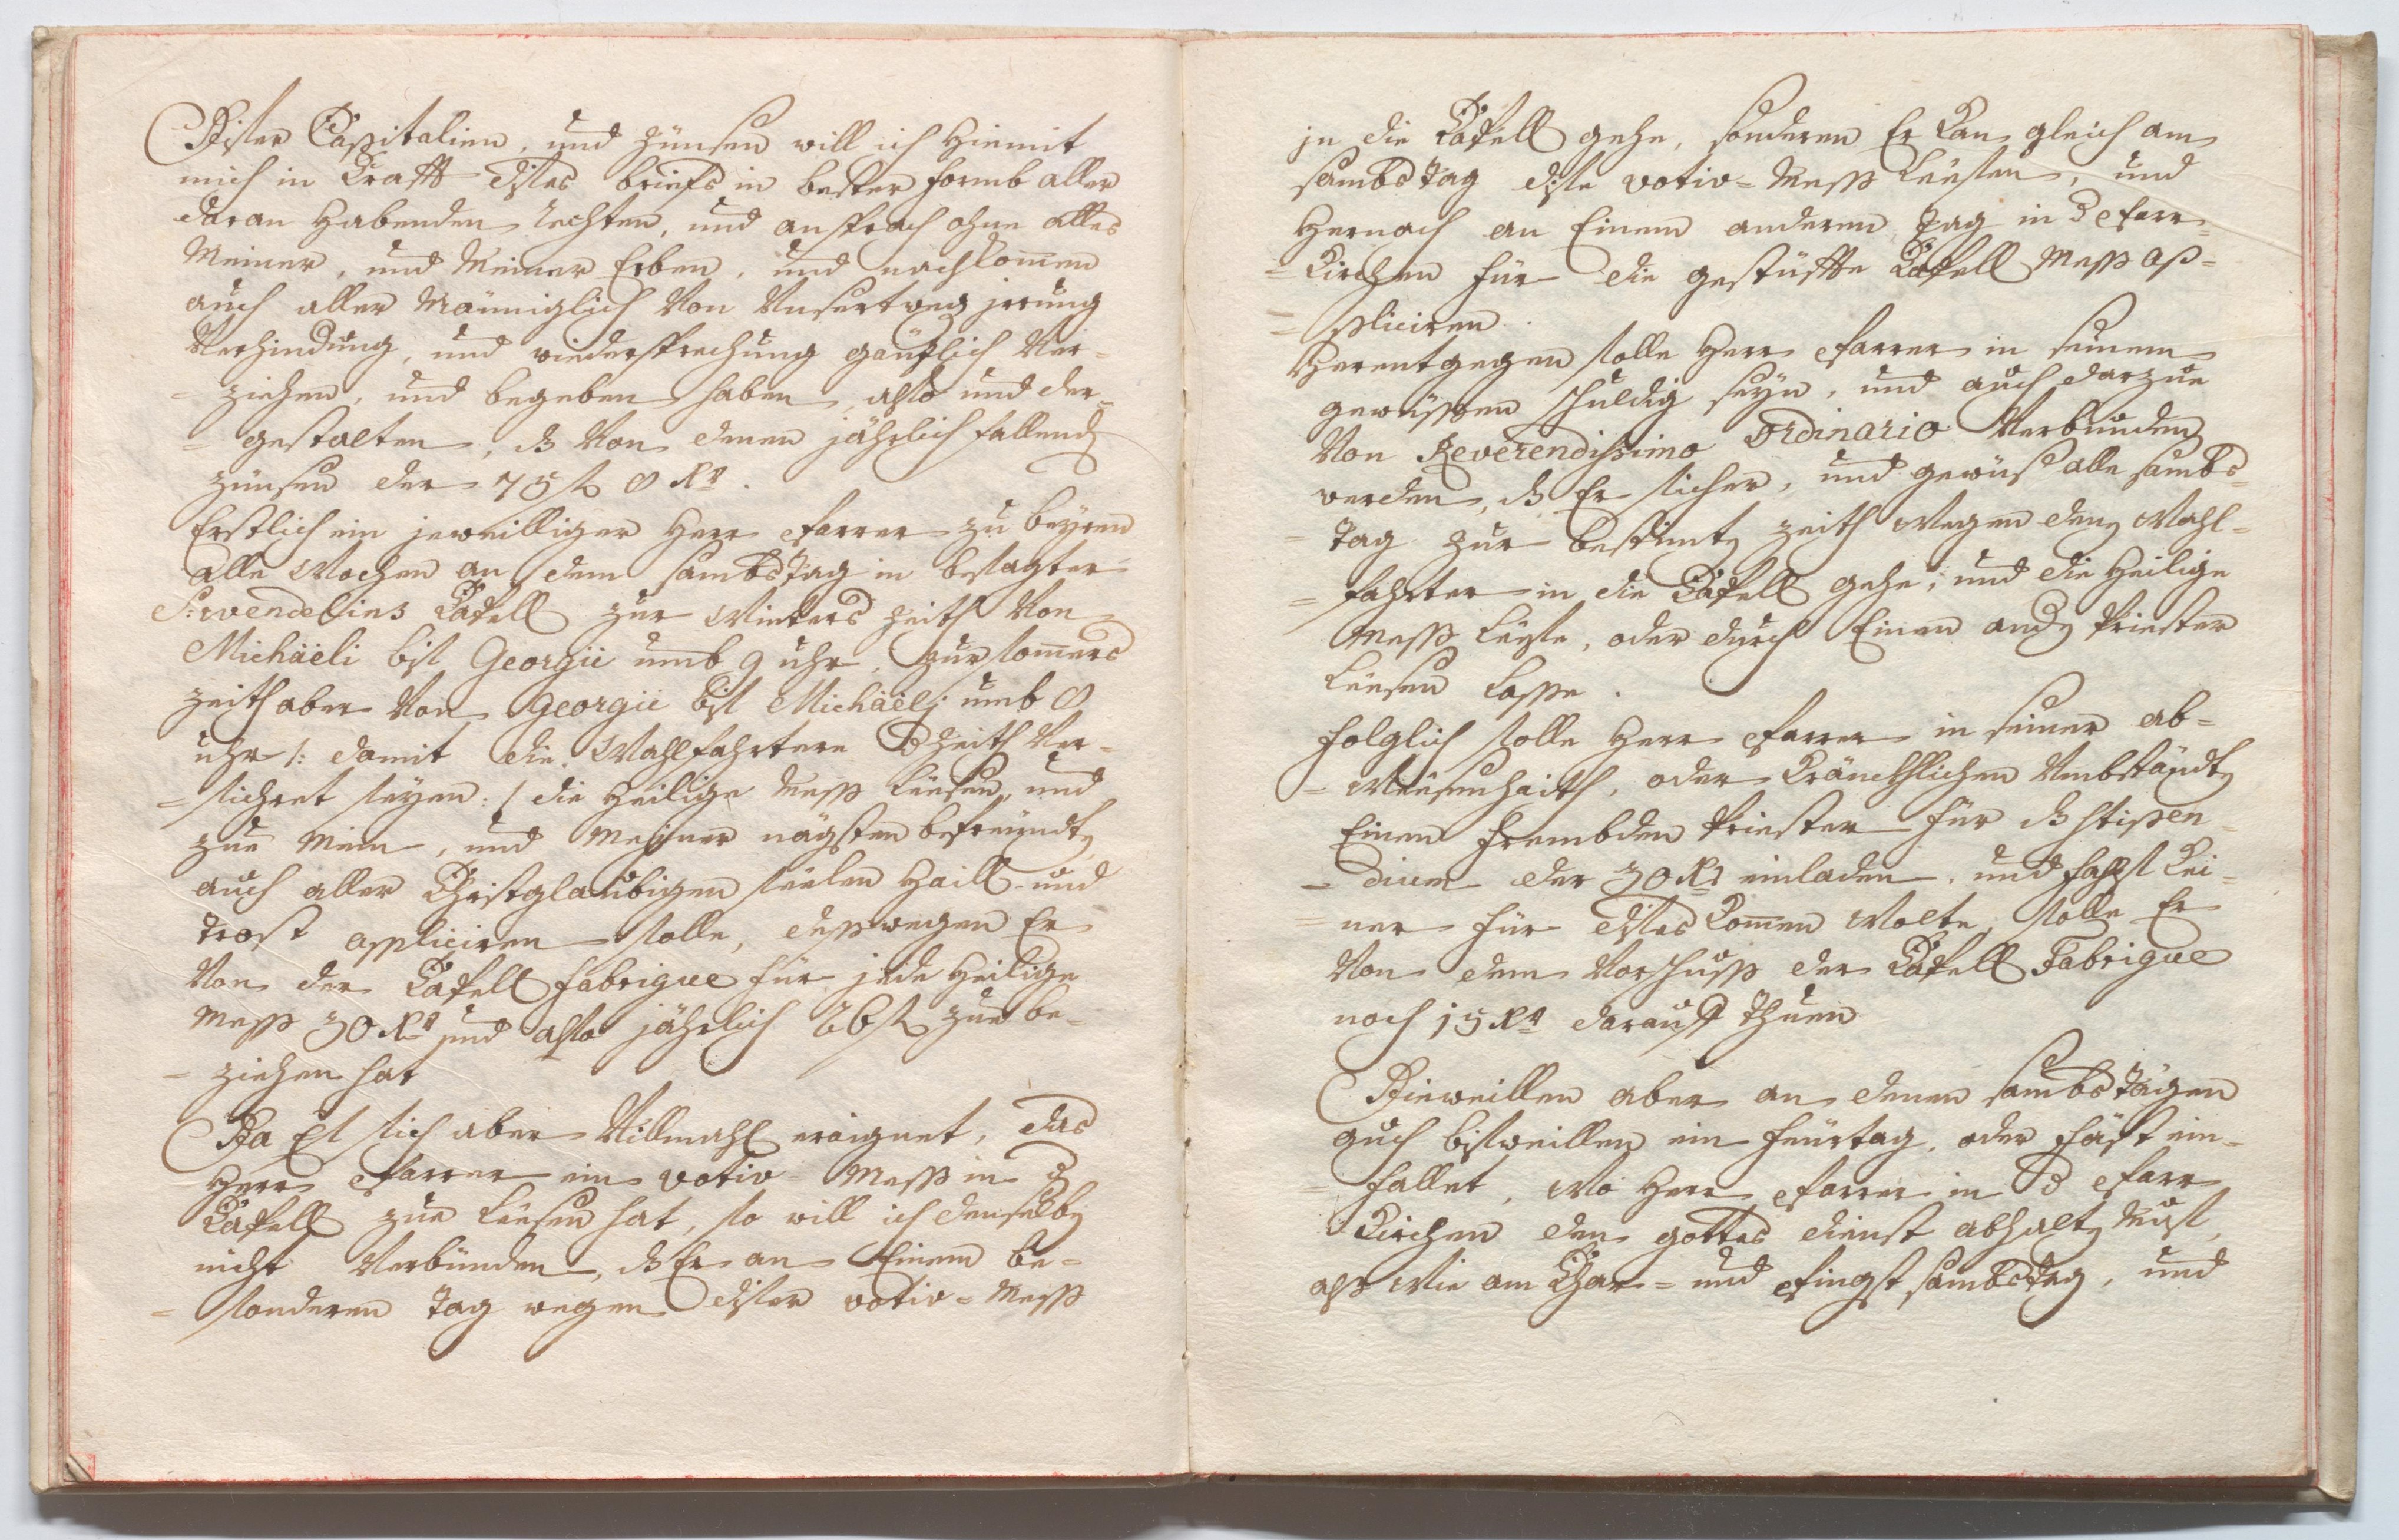 Diser Capitalien, und zünsen will ich hiemit
mich in Crafft dises briefs in bester formb aller
daran habenden rechten, und ansprach ohne alles
Meiner, und Meiner Erben, und nachkom̄en
auch aller Männiglich Von Unsertweg jrrung
Verhindung, und widersprechung gäntzlich Ver-
- ziehen, und begeben haben, also und der-
- gestalten, dß Von denen jährlich fallend
zünsen der 75 fl 8 Kr.
Erstlich ein jeweilliger Herr Pfarrer zu beÿren
alle Wochen an dem sambstag in besagter
S: wendelins Capell zur Winters zeith Von
Michäeli biß Georgii umb 9 uhr, zur som̄ers
zeith aber Von Georgii biß Michäelj umb 8
uhr /: damit die Wahlfahrtere d zeith Ver-
= sichret seÿen :/ die Heilige Mess leësen, und
zue Mein, und Meiner nägsten befreündt
auch aller Christglaubigen seelen Haill und
trost appliciren solle, desswegen Er
Von der Capell fabrique für jede Heilige
Mess 30 Kr und also jährlich 26 fl zue be-
- ziehen hat
Da Es sich aber Villmahl eraignet, das
Herr Pfarrer ein votiv Mess in d
Capell zue leësen hat, so will ich denselb
nicht Verbünden, dß Er an Einem be-
= sonderen tag wegen diser votiv = Mess
jn die Capell gehe, sonderen Er Kan gleich am
sambstag dise votiv = Mess leësen, und
hernach an Einem anderen tag in d Pfarr
= Kirchen für die gestüffte Capell Mess ap-
= pliciren.
Herentgegen solle Herr Pfarrer in seinem
gewüssen schuldig seÿn, und auch darzue
Von Reverendissimo Ordinario Verbunden
werden, dß Er sicher, und gewüß alle sambs-
= tag zur bestim̄t zeith Wegen den Wahl-
= fahrter in die Capell gehe, und die Heilige
Mess leÿse, oder durch Einen and Priester
leësen lasse.
folglich solle Herr Pfarrer in seiner ab-
- Weësenhaith, oder Kräncklichen Umbständt
Einen frembden Priester für dß stipen-
- dium der 30 Kr einladen, und fahls Kei-
= ner für dises Kom̄en Wolte, solle Er
Von dem Vorschuss der Capell Fabrique
noch 15 Kr darauf thuen
Dieweillen aber an denen sambstägen
auch bisweillen ein feürtag, oder fäst ein-
- fallet, Wo Herr Pfarrer in d Pfarr
Kirchen den gottes dienst abhalt Muß,
alß Wie am Char = und Pfingst sambstag, und